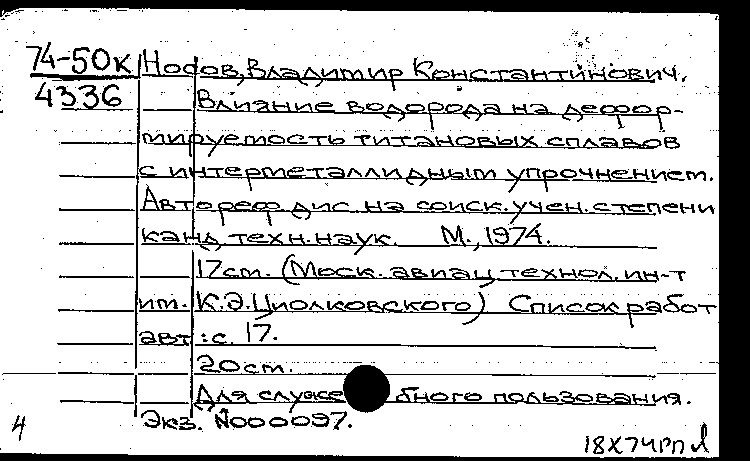 74-50к Носов, Владимир Константинович.
4336 Влияние водорода на дефор-
мируемость титановых сплавов
с интерметаллидным упрочнением.
Автореф дис. на соиск. учен. степени
канд. техн. наук. М., 1974.
17 ст. (Моск. авиац. технол. ин-т
им. К.Э. Циолковского) Список работ
авт: с. 17.
20 ст.
Для служебного пользования.
Экз. №000097.
4
18X74рп